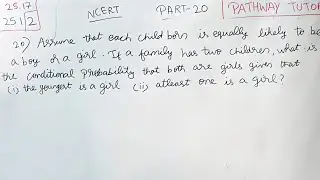 25.17 NCERT PART-20 PATHWAY TUTO
25 12
20) Assume that each child born is equally likely to be
a boy or a girl. If a family has two children, what is
the conditional probability that both are girls given that
(i) the youngest is a girl (ii) atleast one is a girl?